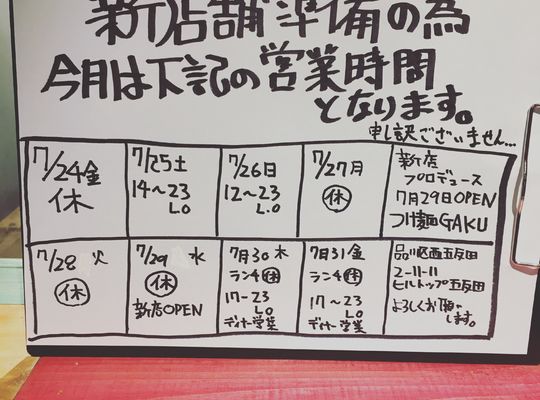 新店舗準備の為
今月は下記の営業時間
となります。
申し訳ございません...
7/24金
休
7/25土
14〜23
L.O
7/26日
12〜23
L.O
7/27月
休
新店
プロデュース
7月29日OPEN
つけ麺GAKU
7/28 火
休
7/29 水
休
新店OPEN
7月30木
ランチ休
17〜23
L.O
ディナー営業
7月31金
ランチ休
17〜23
L.O
ディナー営業
品川区西五反田
2-11-11
ヒルトップ五反田
よろしくお願い
します。